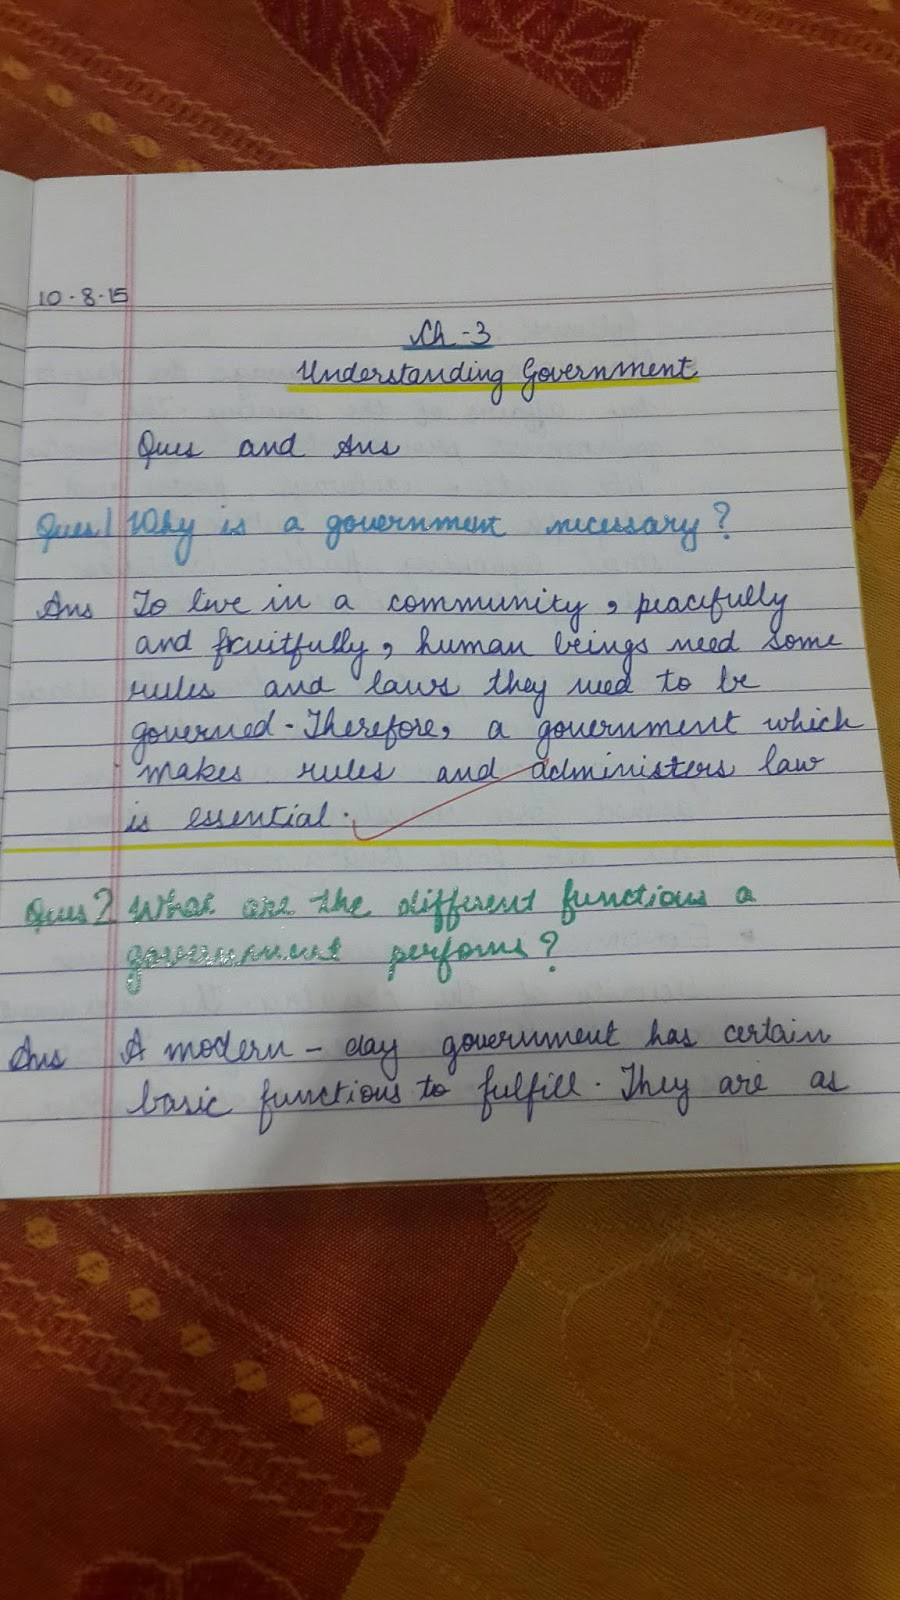 10-8-15
Ch-3
Understanding Government
Ques and Ans
Ques 1 Why is a government necessary?
Ans To live in a community, peacefully
and fruitfully, human beings need some
rules and laws they need to be
governed. Therefore, a government which
makes rules and administers law
is essential.
Ques 2 What are the different functions a
government performs?
Ans A modern-day government has certain
basic functions to fulfill. They are as